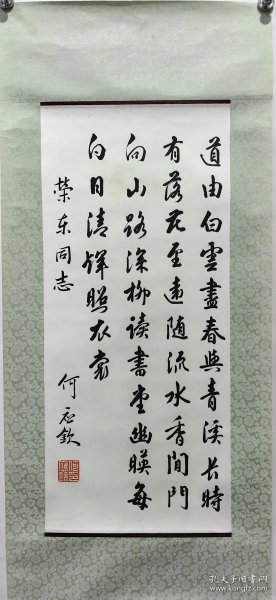 道由白雲盡春與青溪长時
有落花至遠随流水香閒門
向山路深柳读書堂幽暎每
白日清辉照衣裳
榮东同志
何应钦
孔夫子旧书网